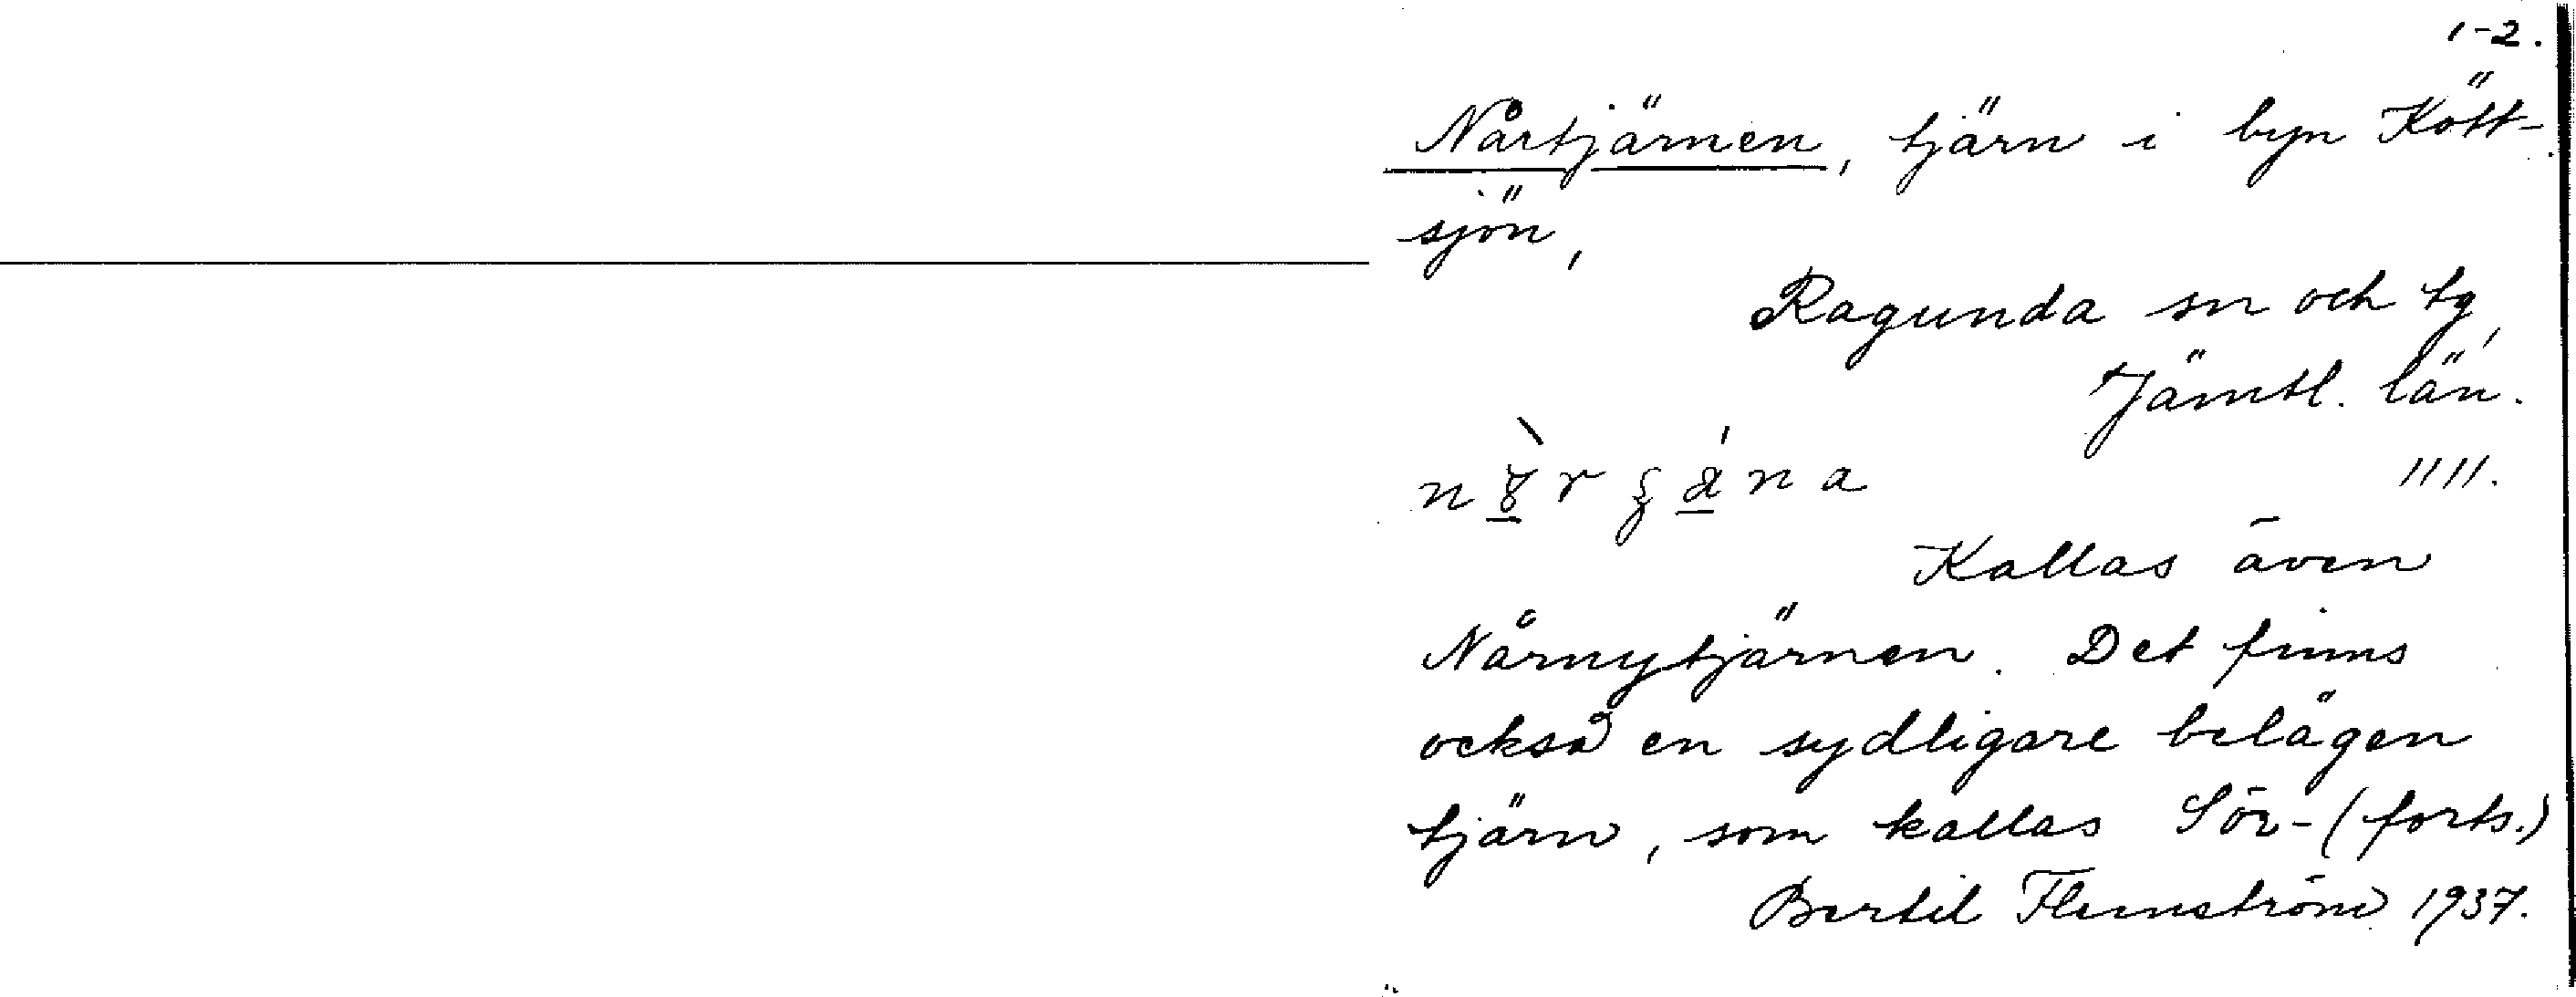 1-2.
Nårtjärnen, tjärn i byn Kött-
sjön,
Ragunda sn och tg,
Jämtl. län.
1111.
Kallas även
Nårnytjärnen. Det finns
också en sydligare belägen
tjärn, som kallas Sör- (forts.)
Bertil Flemström 1937.